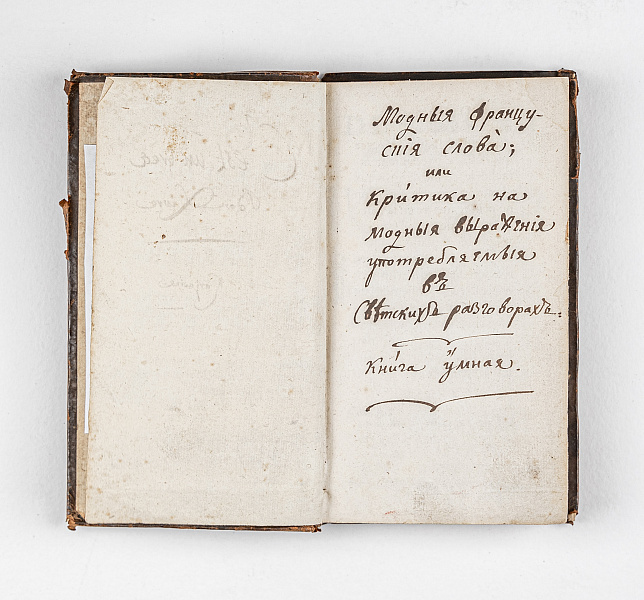 Модныя францу-
скія слова̀;
или
Кри́тика на
модныя выраженія
употребляемыя
въ
Свѣтскихъ разговорахъ.
Кни́га у́мная.